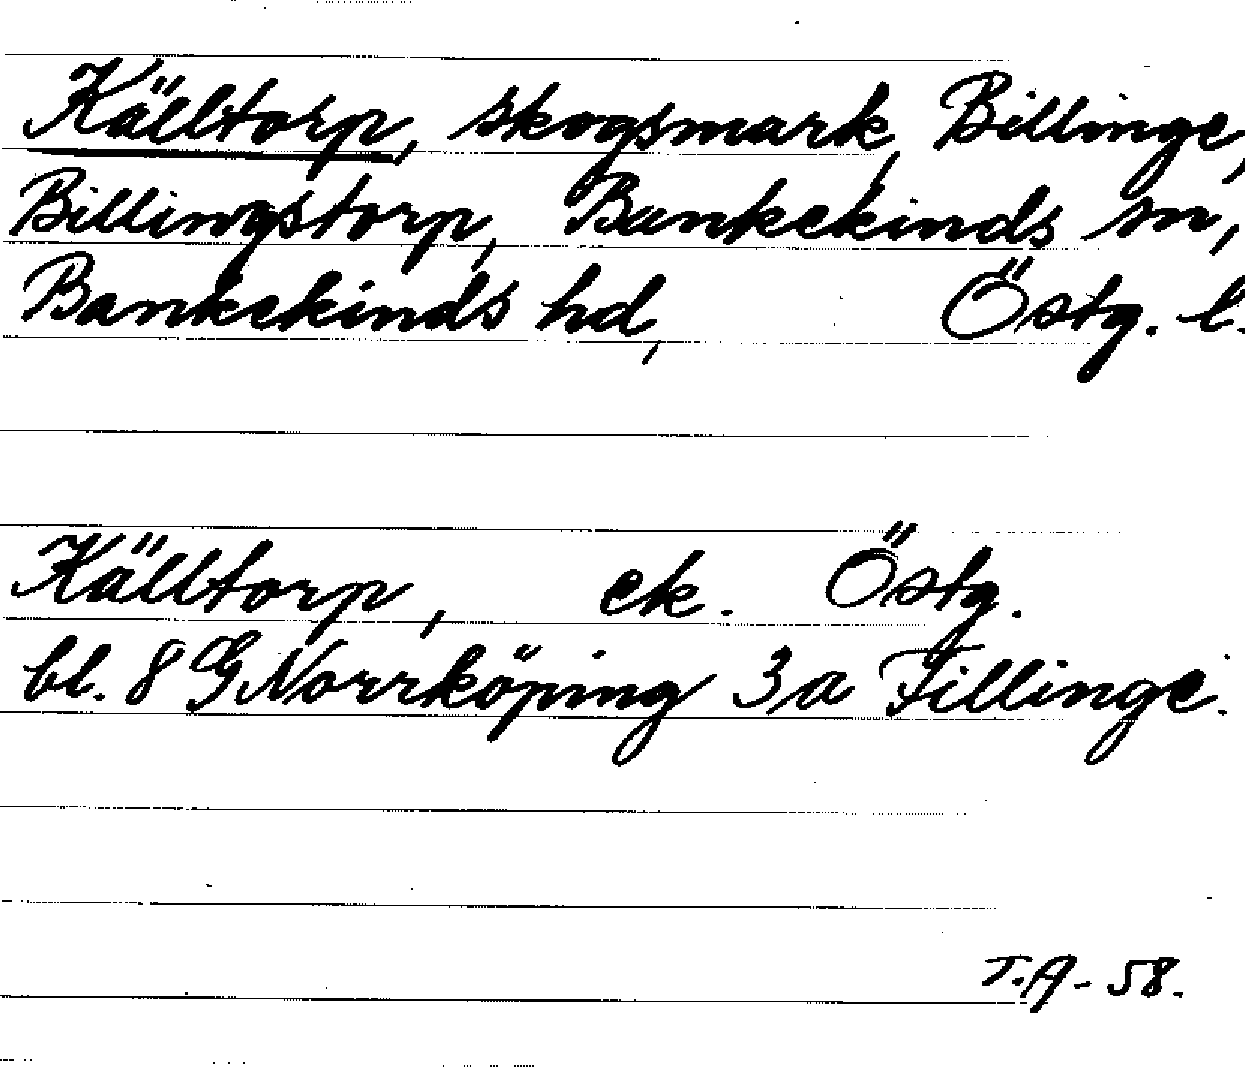 Källtorp, skogsmark, Billinge,
Billingstorp, Bankekinds sn,
Bankekinds hd, Östg. l.
Källtorp, ek. Östg.
bl. 8 G Norrköping 3a Fillinge.
T.A - 58.